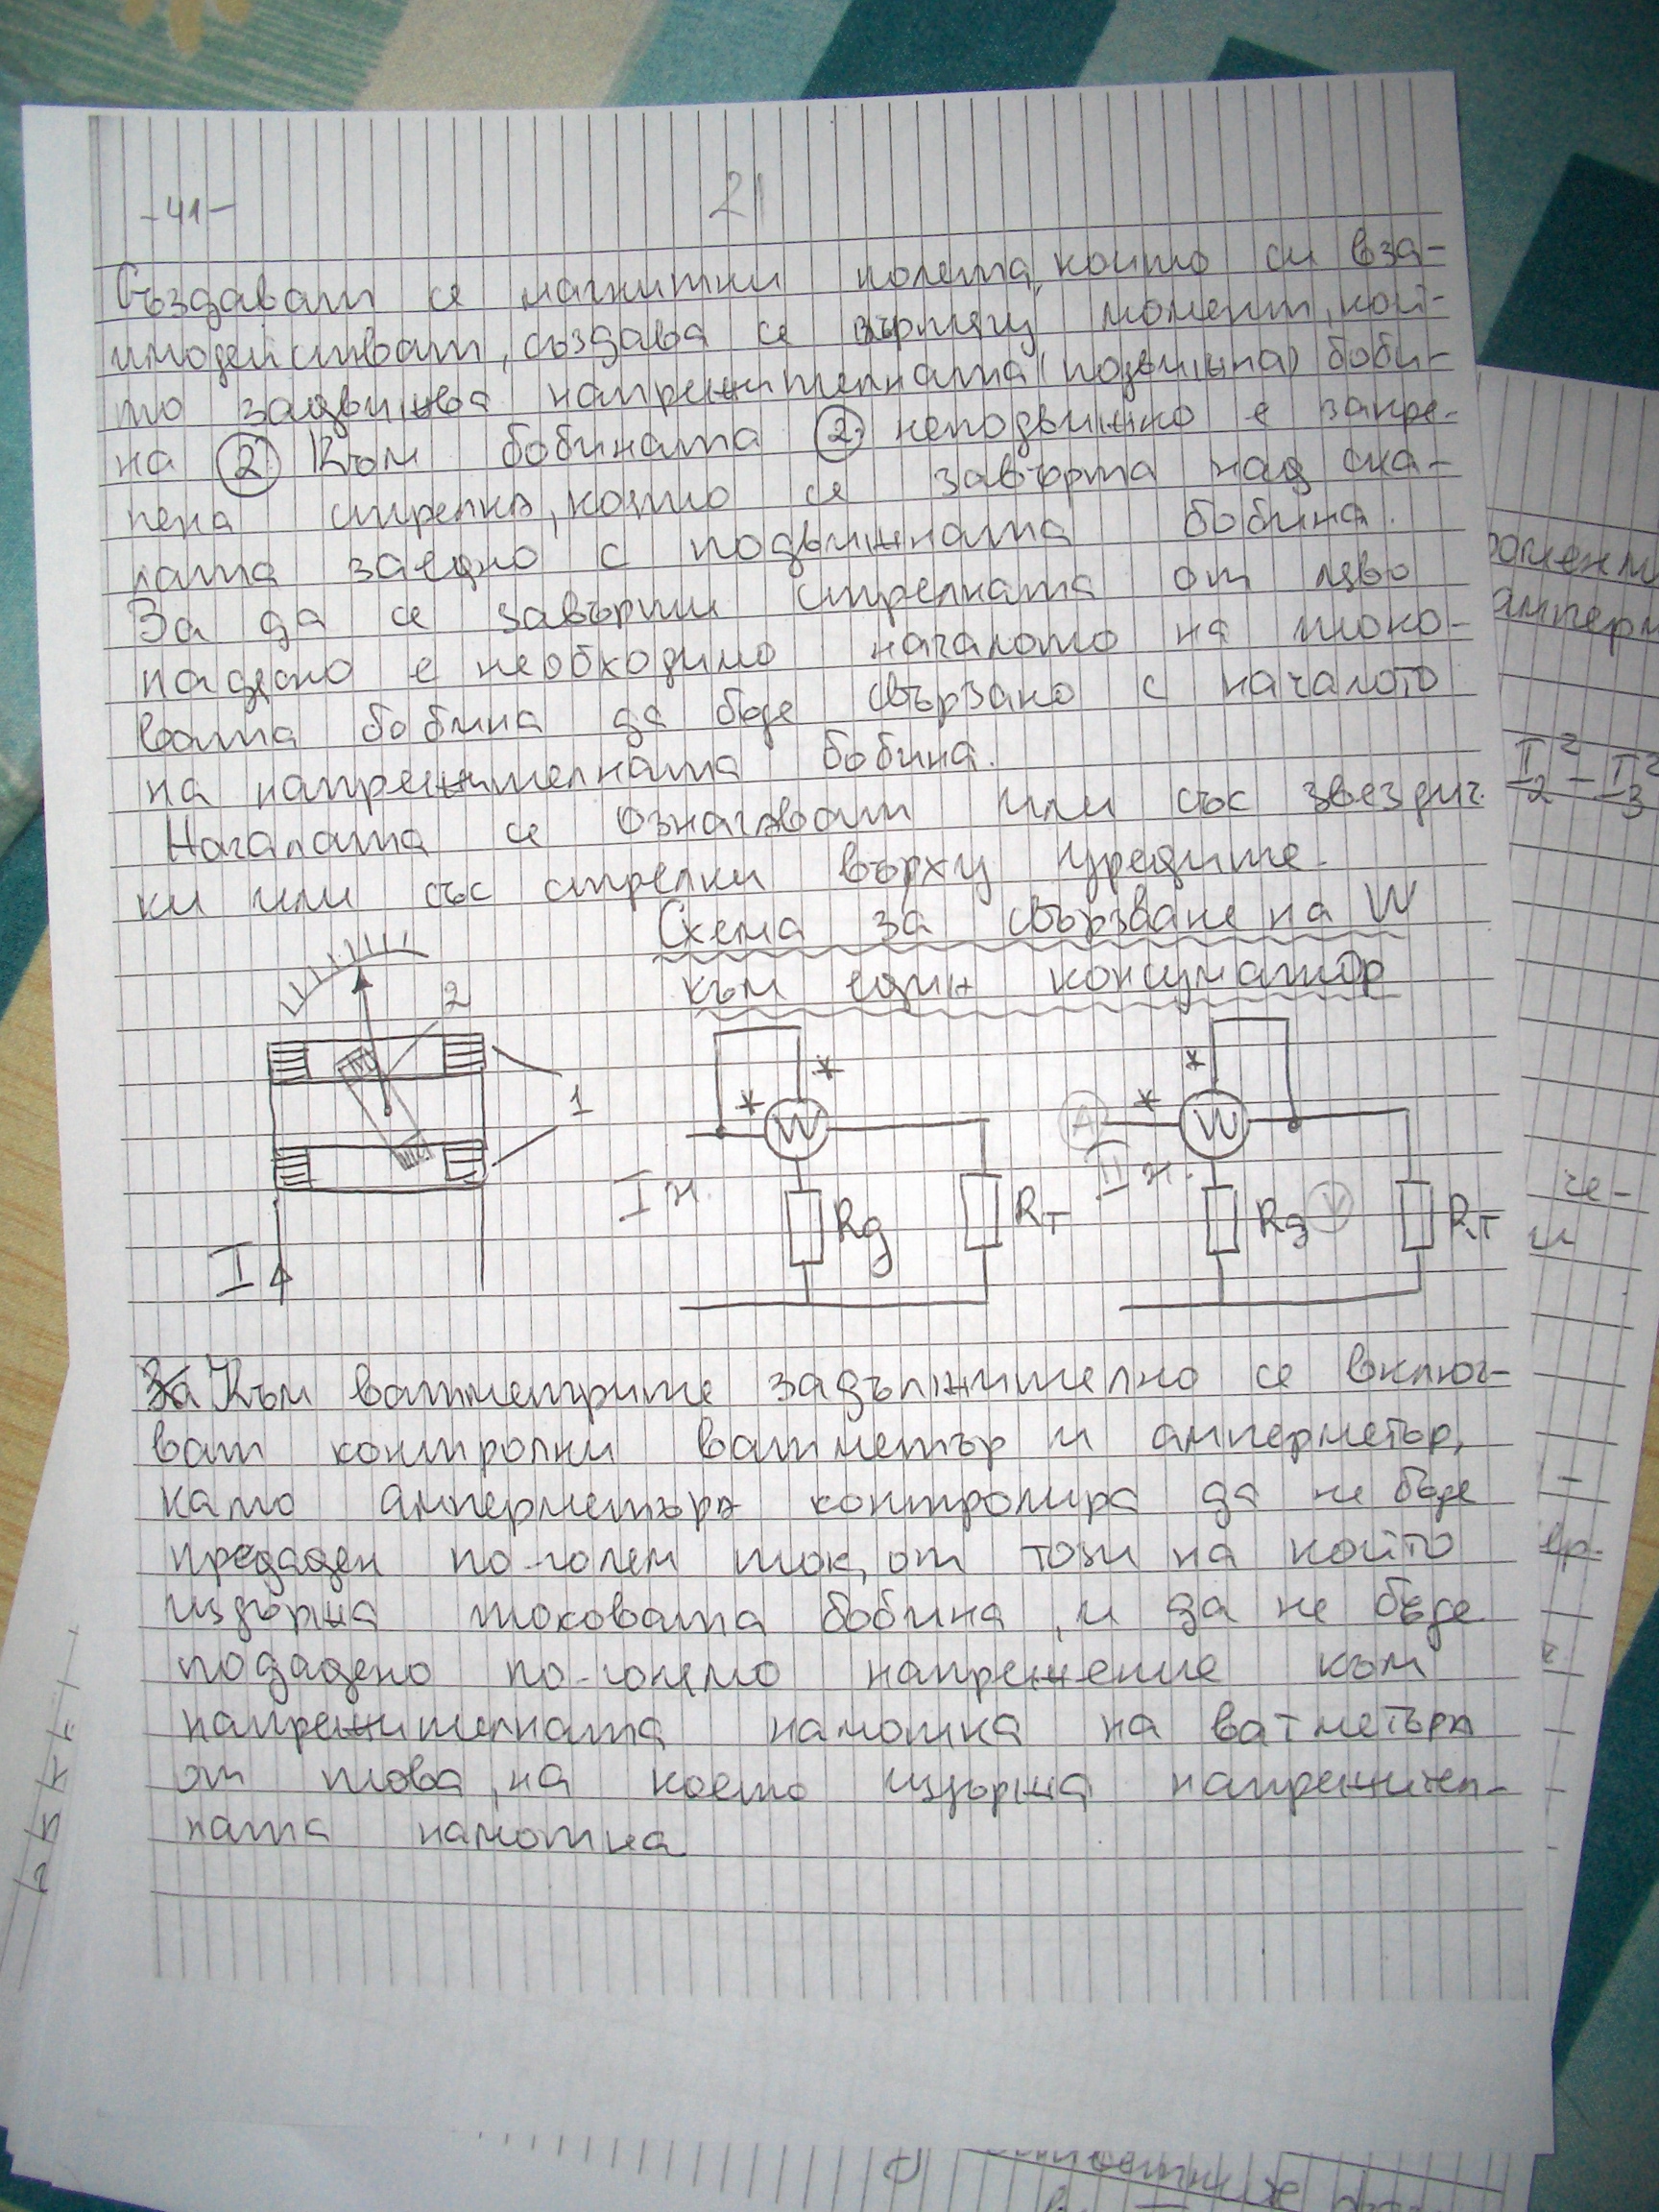 -41-
21
Създават се магнитни полета, които си вза-
имодействат, създава се въртящ момент, кой-
то задвижва напрежителната (подвижна) боби-
на 2. Към бобината 2 неподвижно е закре-
пена стрелка, която се завърта над ска-
лата заедно с подвижната бобина.
За да се завърти стрелката от ляво
надясно е необходимо началото на токо-
вата бобина да бъде свързано с началото
на напрежителната бобина.
Началата се означават или със звездич-
ки или със стрелки върху уредите.
Схема за свързване на W
към един консуматор
2
1
I
* *
W
I н.
Rg
RT
A
* *
W
II н.
Rg
V
RT
За Към ватметрите задължително се включ-
ват контролни ватметър и амперметър,
като амперметъра контролира да не бъде
предаден по-голям ток, от този на който
издържа токовата бобина, и да не бъде
подадено по-голямо напрежение към
напрежителната намотка на ватметъра
от това, на което издържа напрежител-
ната намотка
I₂² - I₃²
че-